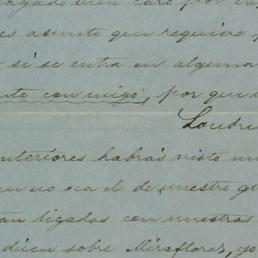 pagado bien caro por es
es asunto que requiere
si se entra en alguna
nte con migo, por que
Londre
nteriores habrás visto un
no era el de nuestro g
an ligados con nuestros
dicen sobre Miraflores, yo